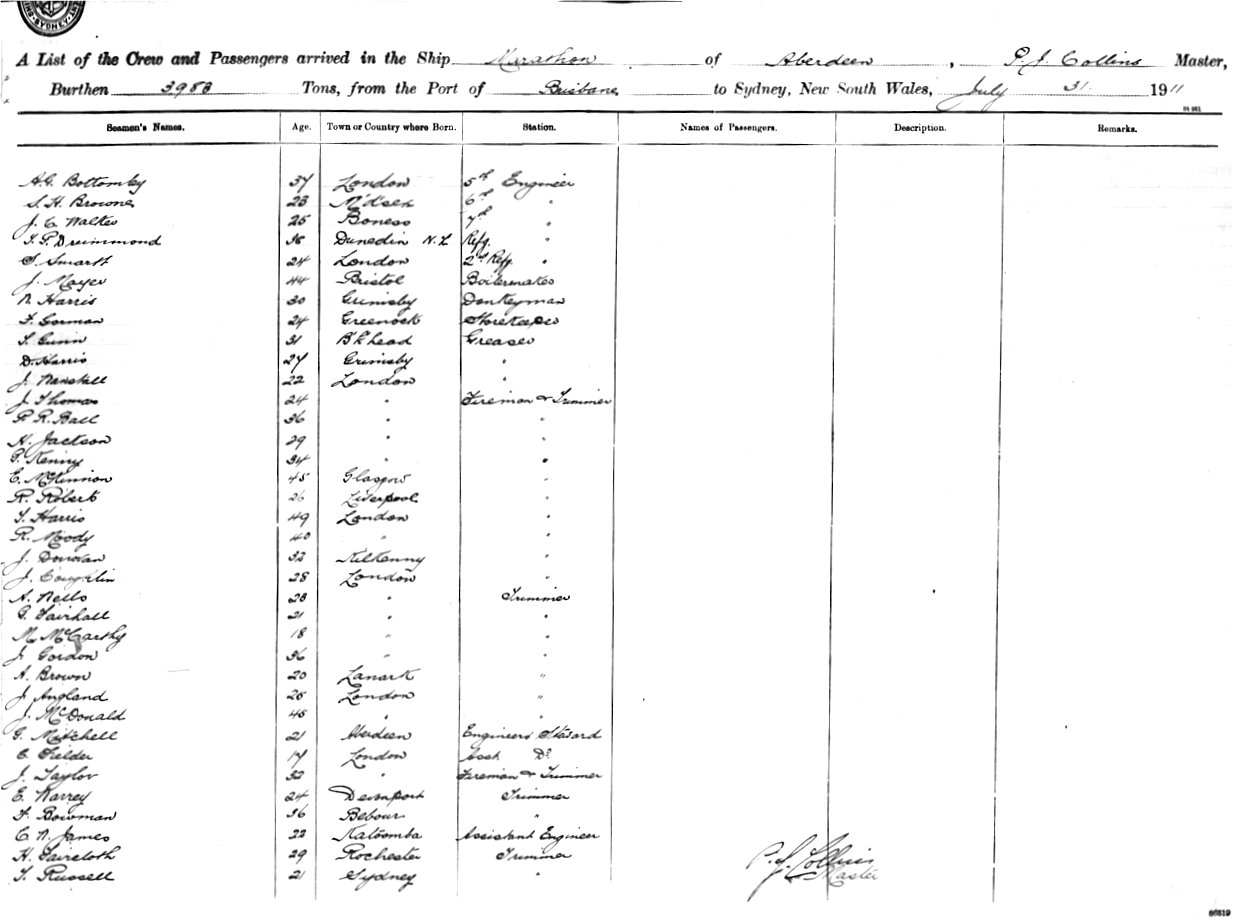 SYDNEY
A List of the Crew and Passengers arrived in the Ship Marathon of Aberdeen, P. J. Collins Master,
Burthen 3988 Tons, from the Port of Brisbane to Sydney, New South Wales, July 31 1911
Seamen's Names. Age. Town or Country where Born. Station. Names of Passengers. Description. Remarks.
A.G. Bottomley 37 London 5th Engineer
S. H. Browne 23 M'd'sex 6th "
J. C. Walker 25 Boness 7th "
Drummond 38 Dunedin N.Z. Refg. "
S. Smart 24 London 2nd Refg. "
J. Mayer 44 Bristol Boilermaker
N Harris 30 Grimsby Donkeyman
F. Gorman 24 Greenock Storekeeper
T. Gunn 31 B'k'head Greaser
D. Harris 27 Grimsby "
J. 22 London "
J. Thomas 24 " Fireman & Trimmer
P. R. Ball 36 " "
H. Jackson 29 " "
P. Kenny 34 " "
E. McKinnon 45 Glasgow "
R. Robert 26 Liverpool "
T. Harris 49 London "
R. Moody 40 " "
J. Donovan 32 Kilkenny "
J. Coughlin 28 London "
A. Nells 23 " Trimmer
G. Fairhall 21 " "
M. McCarthy 18 " "
J. Gordon 36 " "
A. Brown 20 Lanark "
J. Angland 25 London "
J. McDonald 45 " "
G. Mitchell 21 Aberdeen Engineers Steward
E. Fielder 17 London Asst. Do.
J. Taylor 32 " Fireman & Trimmer
E. Karrey 24 Devonport Trimmer
F. Bowman 36 Bebour "
C. N. James 22 Katoomba Assistant Engineer
H. Faircloth 29 Rochester Trimmer
T. Russell 21 Sydney "
P. J. Collins
Master
86519